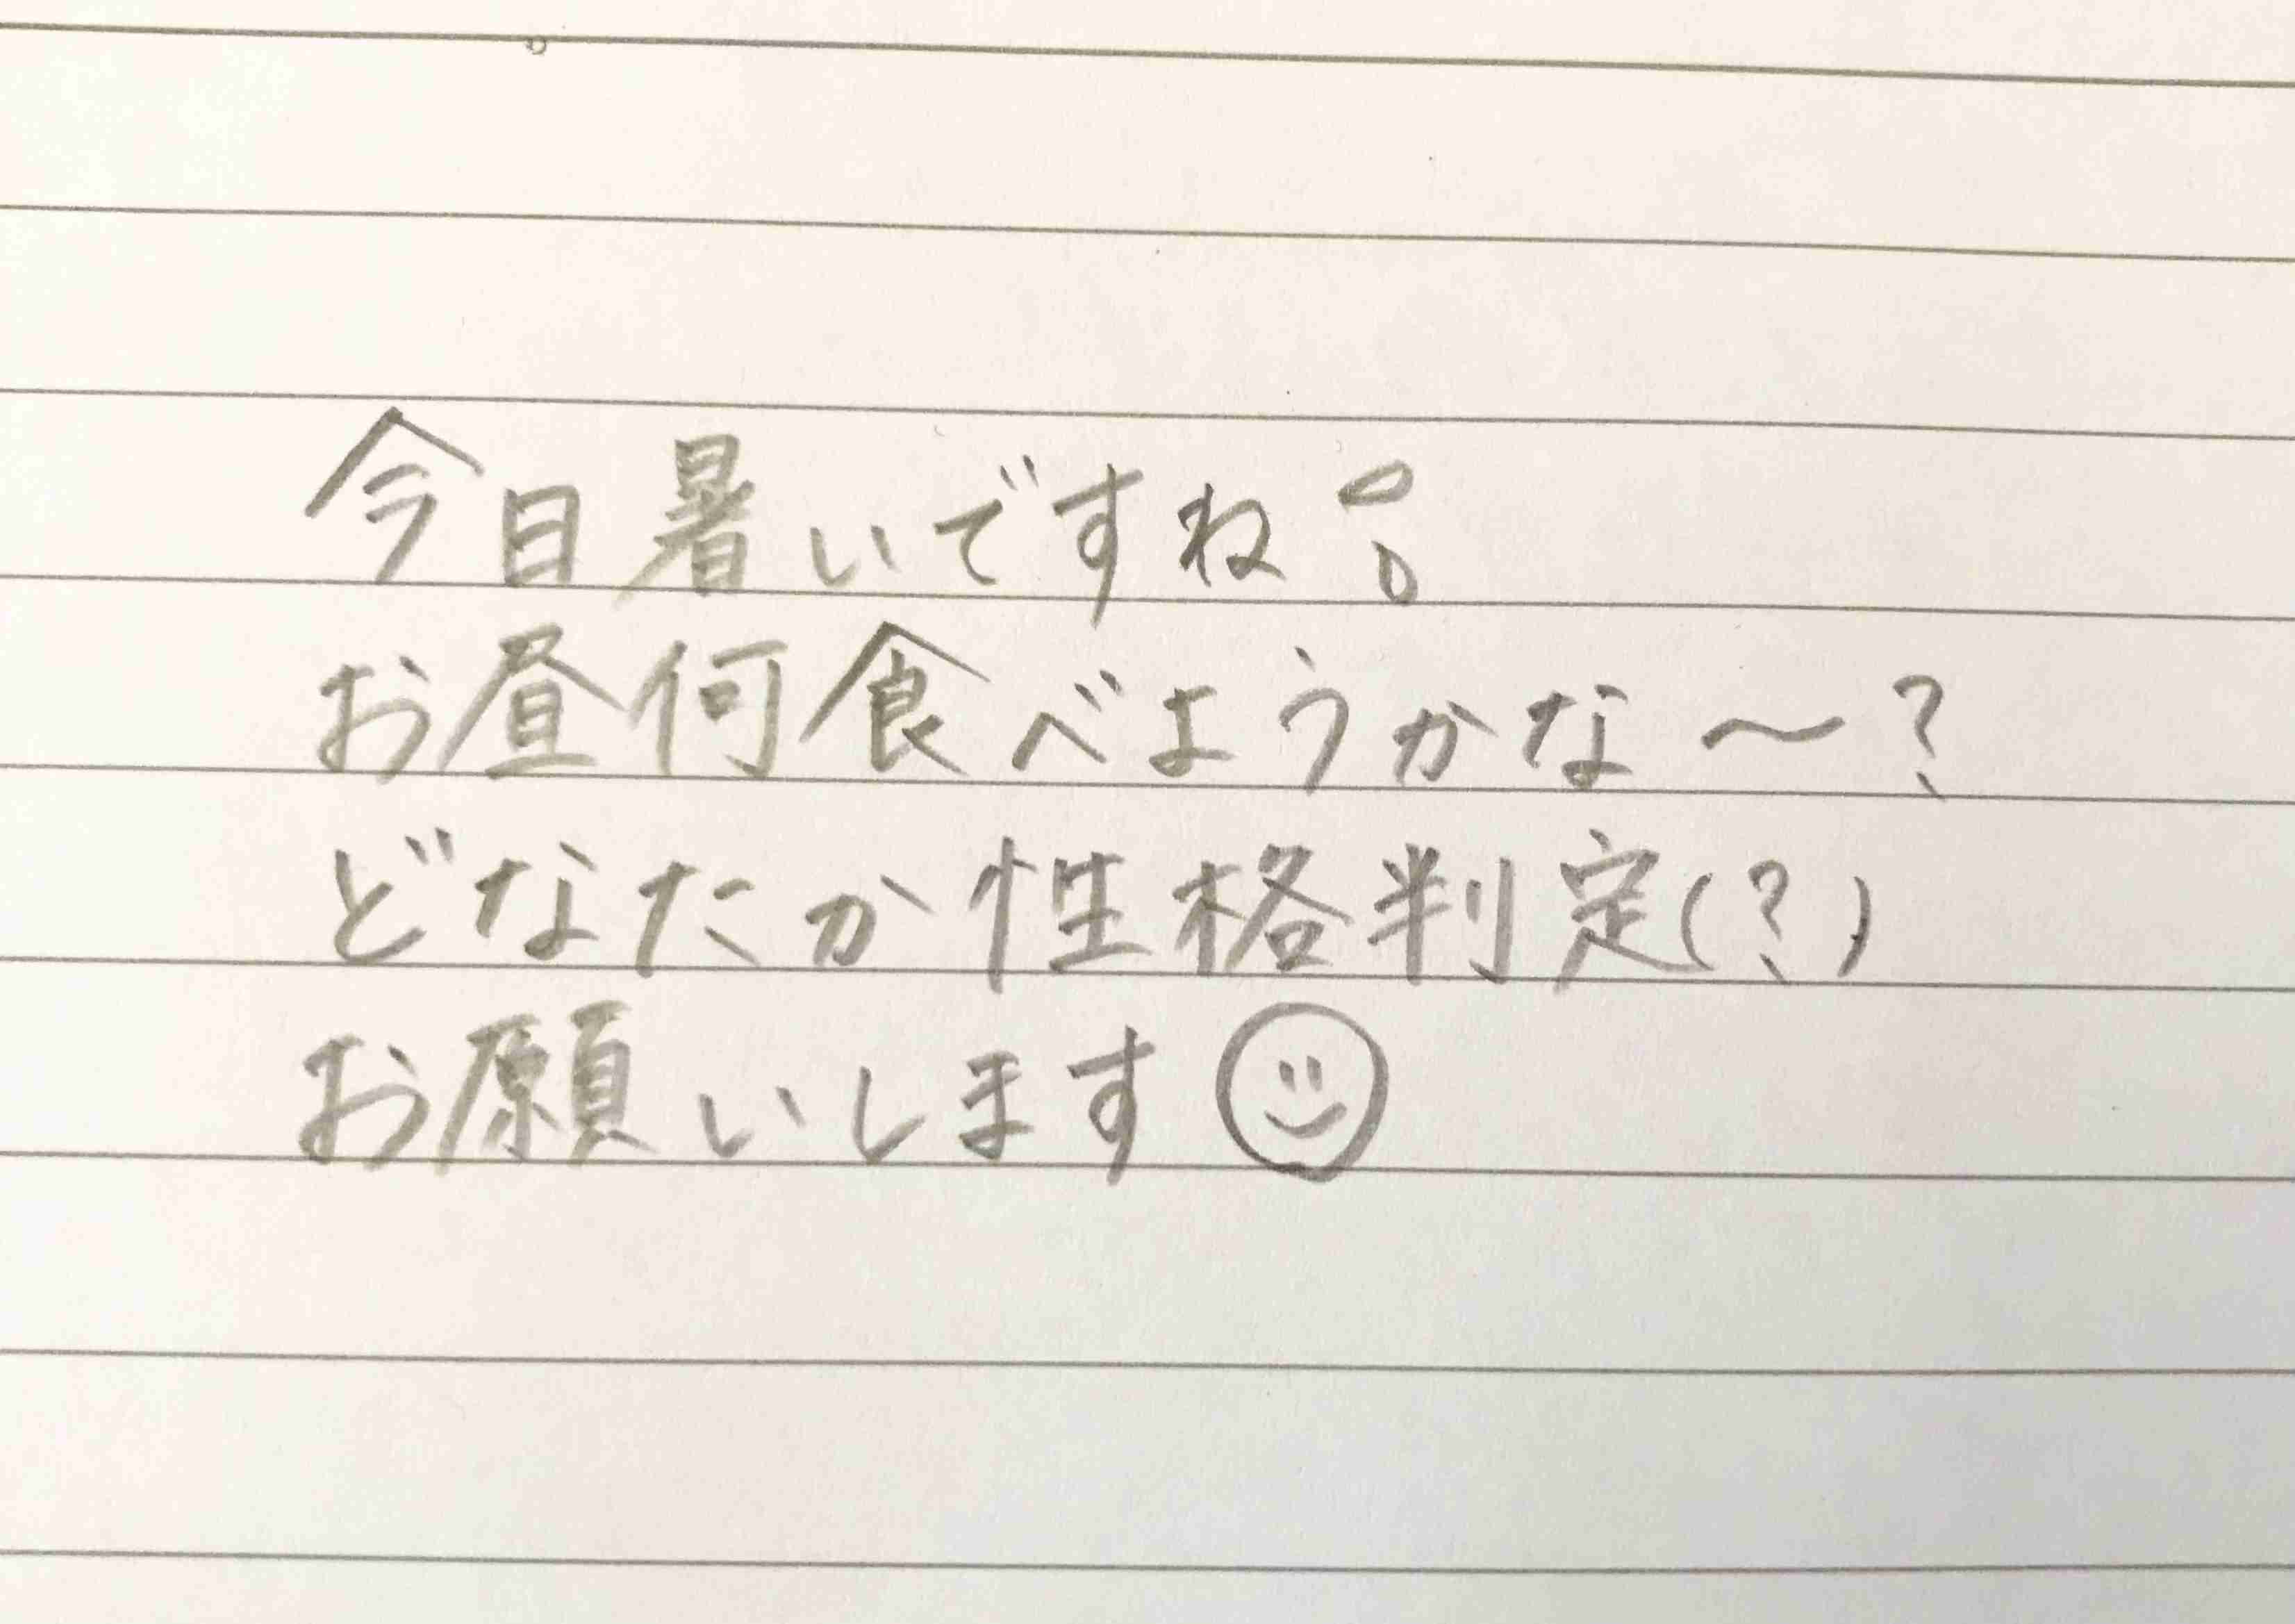 今日暑いですね
お昼何食べようかな〜?
どなたか性格判定(?)
お願いします